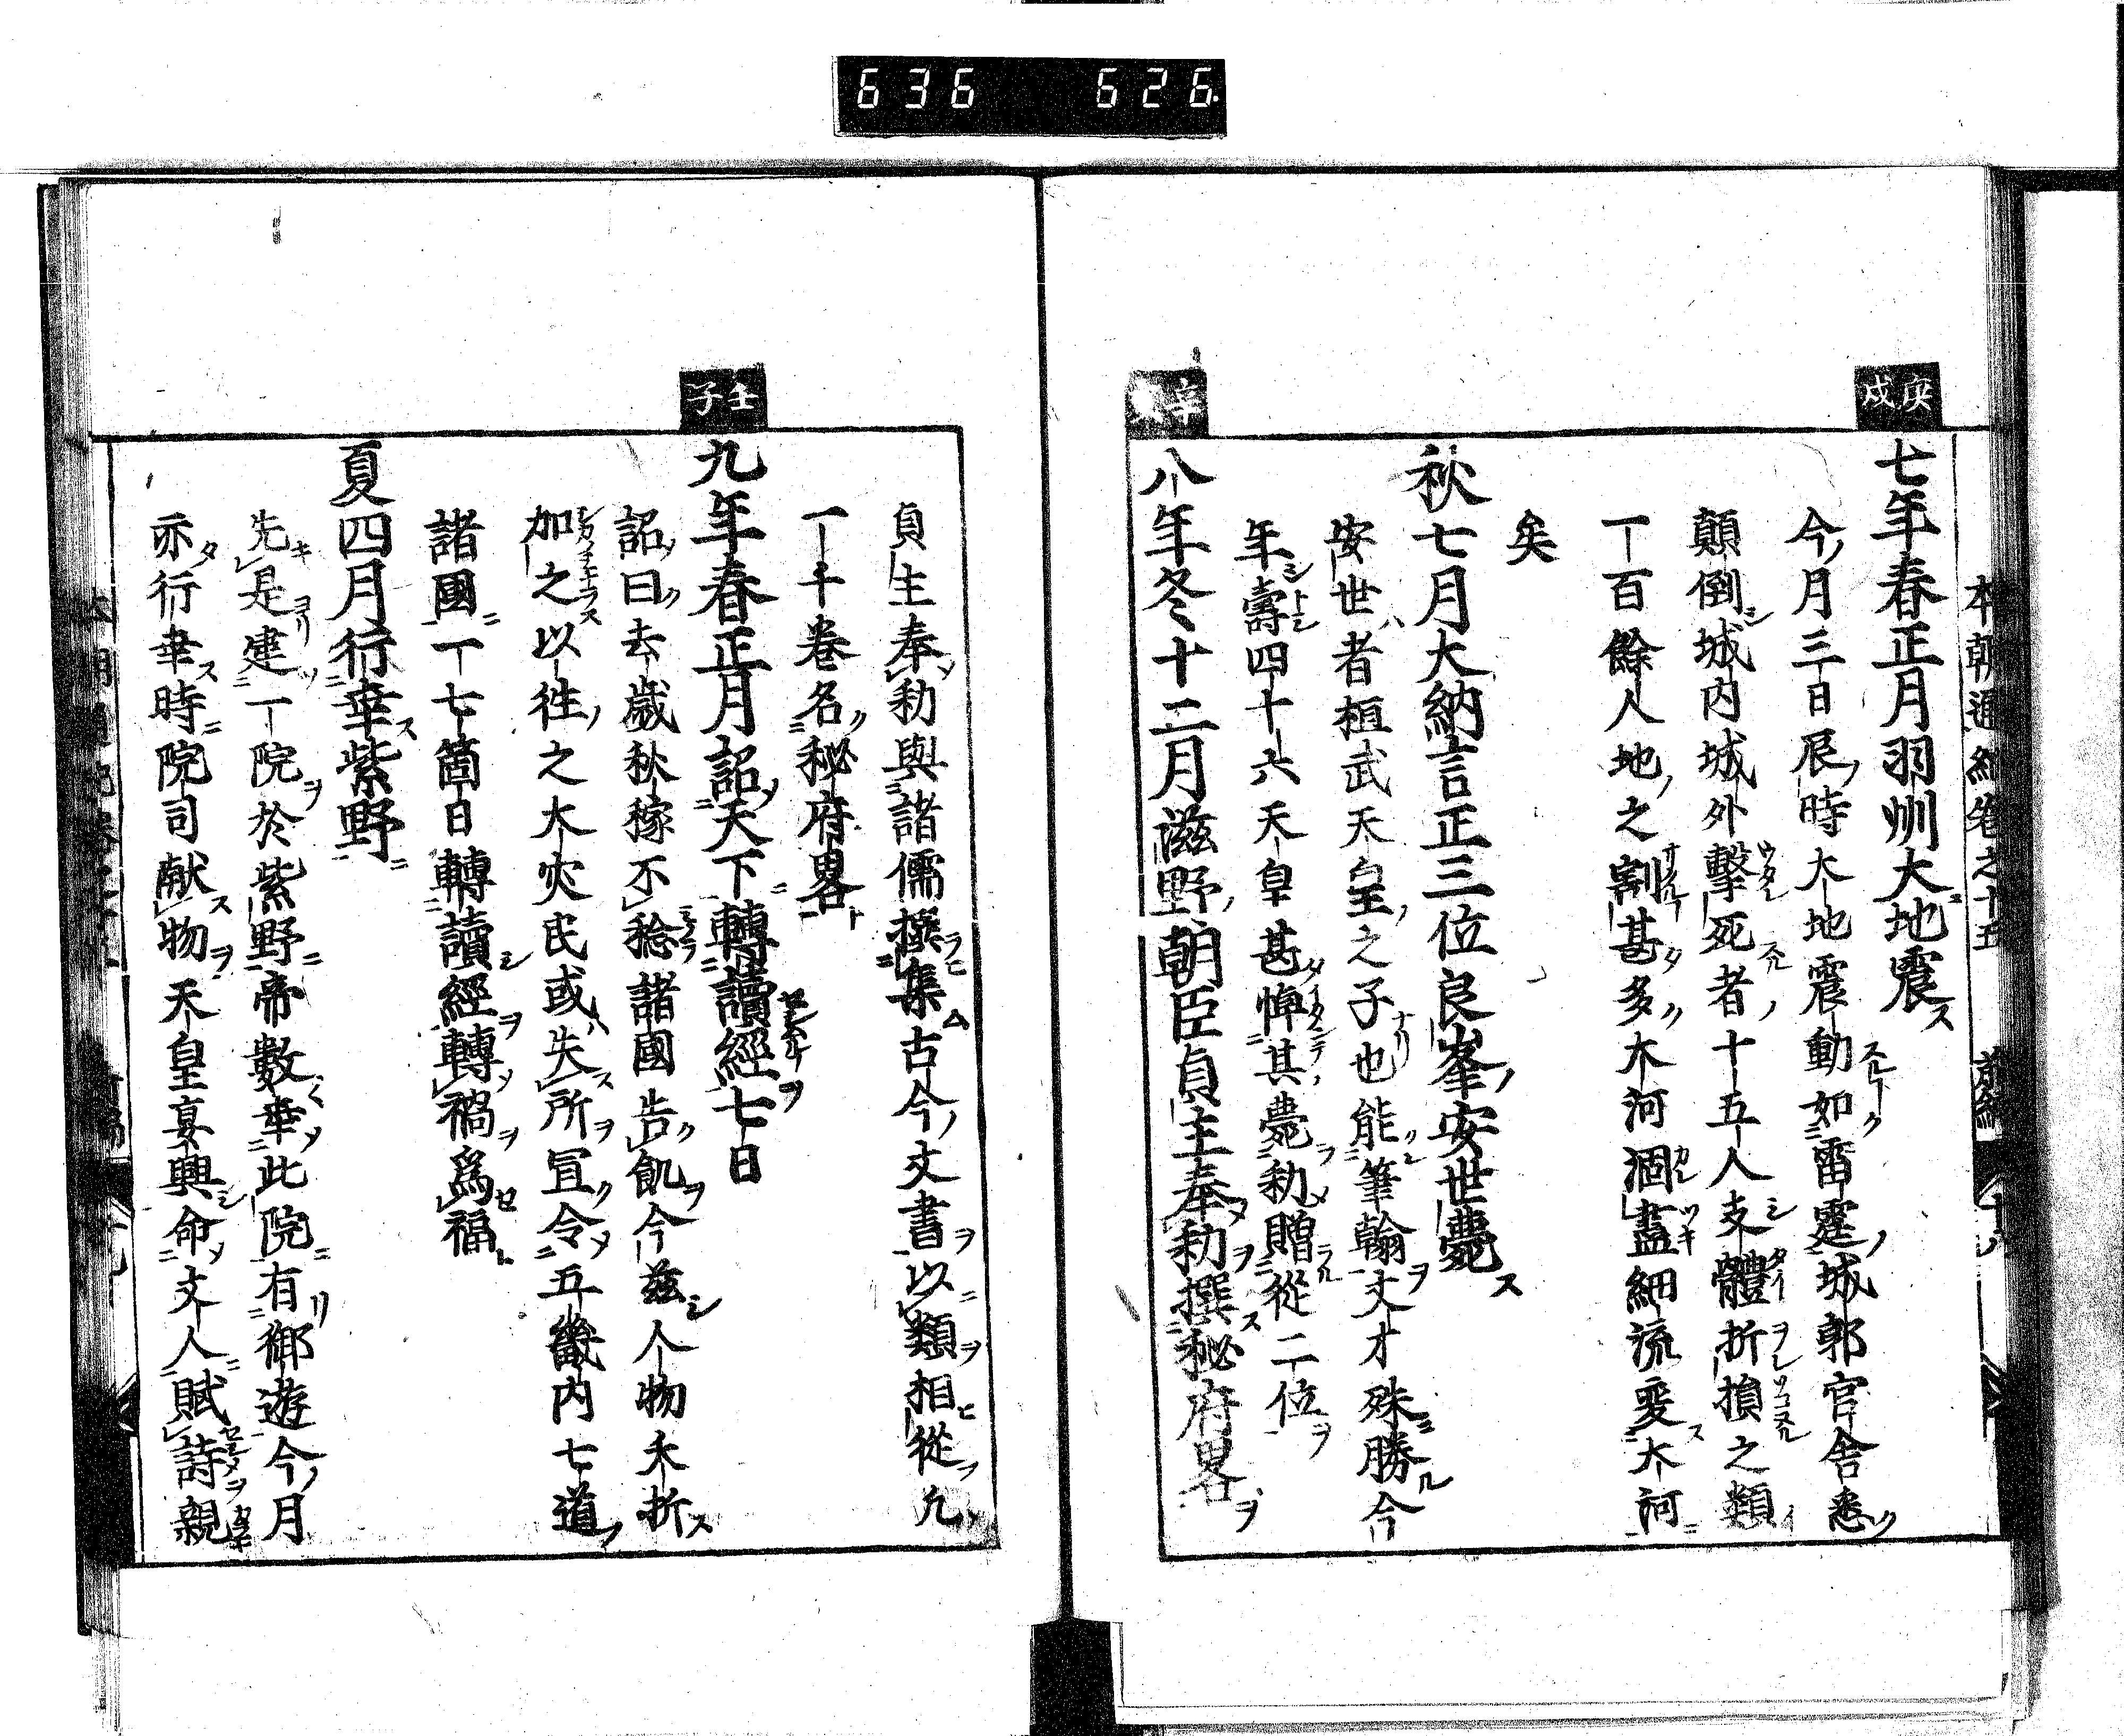 636 626.
本朝通紀卷之十五 前編 十八
庚戌
七年春正月羽州大地震ス
今月三日辰時大地震動如雷霆城郭官舎悉
顛倒城内城外擊死者十五人支體折損之類
一百餘人地之割甚多大河涸盡細流変大河
矣
秋七月大納言正三位良峯安世薨ス
安世者桓武天皇之子也能筆翰文才殊勝今
年壽四十六天皇甚悼其薨勅贈從二位
辛
八年冬十二月滋野朝臣貞主奉勅撰秘府畧
貞主奉勅與諸儒撰集古今文書以類相從凡
一千卷名秘府畧
壬子
九年春正月詔天下轉讀經七日
詔曰去歲秋稼不稔諸國告飢今茲人物夭折
加之以往之大灾民或失所冝令五畿内七道
諸國一七箇日轉讀經轉禍爲福
夏四月行幸紫野
先是建一院於紫野帝數幸此院有御遊今月
亦行幸時院司献物天皇宴興命文人賦詩親